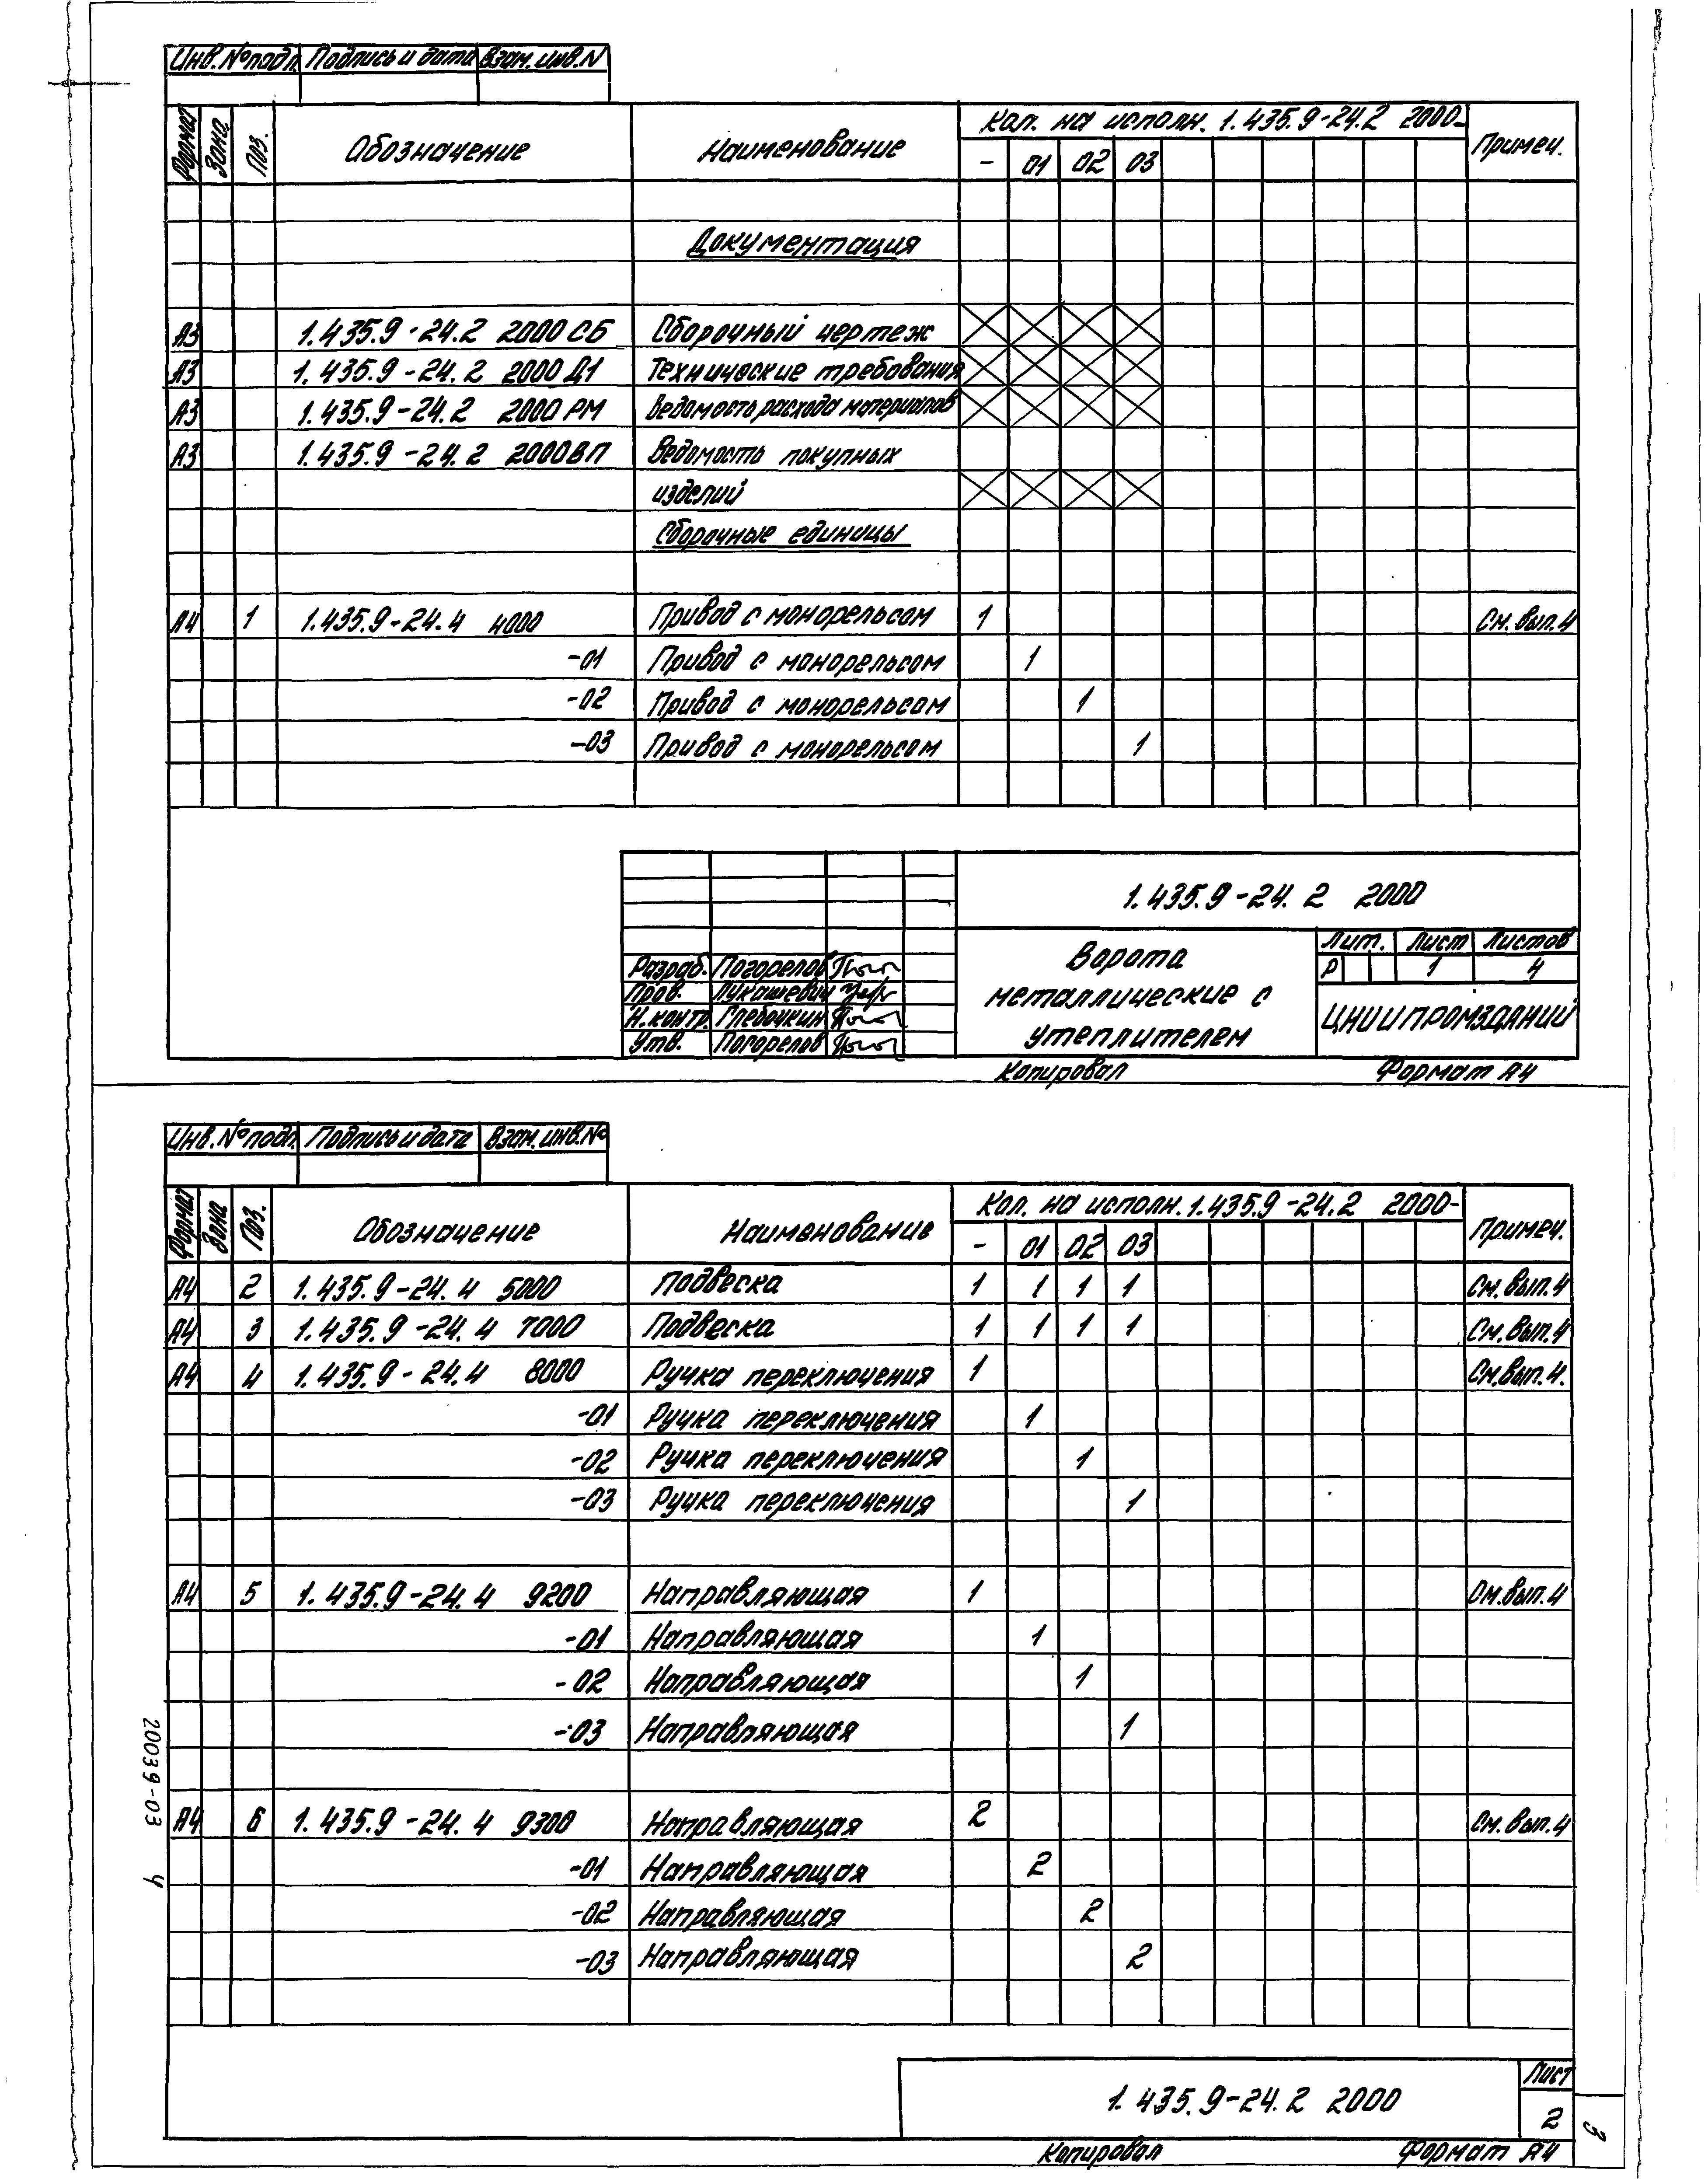 Инв. № подл. Подпись и дата Взам. инв. N
Формат Зона Поз. Обозначение Наименование Кол. на исполн. 1.435.9-24.2 2000- Примеч.
- 01 02 03
Документация
А3 1.435.9-24.2 2000 СБ Сборочный чертеж
А3 1.435.9-24.2 2000 Д1 Технические требования
А3 1.435.9-24.2 2000 РМ Ведомость расхода материалов
А3 1.435.9-24.2 2000 ВП Ведомость покупных
изделий
Сборочные единицы
А4 1 1.435.9-24.4 4000 Привод с монорельсом 1 См. вып. 4
-01 Привод с монорельсом 1
-02 Привод с монорельсом 1
-03 Привод с монорельсом 1
1.435.9-24.2 2000
Разраб. Погорелов
Пров. Лукашевич
Н. контр. Глебочкин
Утв. Погорелов
Ворота
металлические с
утеплителем
Лит. Лист Листов
Р 1 4
ЦНИИПРОМЗДАНИЙ
Копировал Формат А4
Инв. № подл. Подпись и дата Взам. инв. №
Формат Зона Поз. Обозначение Наименование Кол. на исполн. 1.435.9-24.2 2000- Примеч.
- 01 02 03
А4 2 1.435.9-24.4 5000 Подвеска 1 1 1 1 См. вып. 4
А4 3 1.435.9-24.4 7000 Подвеска 1 1 1 1 См. вып. 4
А4 4 1.435.9-24.4 8000 Ручка переключения 1 См. вып. 4.
-01 Ручка переключения 1
-02 Ручка переключения 1
-03 Ручка переключения 1
А4 5 1.435.9-24.4 9200 Направляющая 1 См. вып. 4
-01 Направляющая 1
-02 Направляющая 1
-03 Направляющая 1
А4 6 1.435.9-24.4 9300 Направляющая 2 См. вып. 4
-01 Направляющая 2
-02 Направляющая 2
-03 Направляющая 2
20039-03 4
1.435.9-24.2 2000
Лист
2
3
Копировал Формат А4